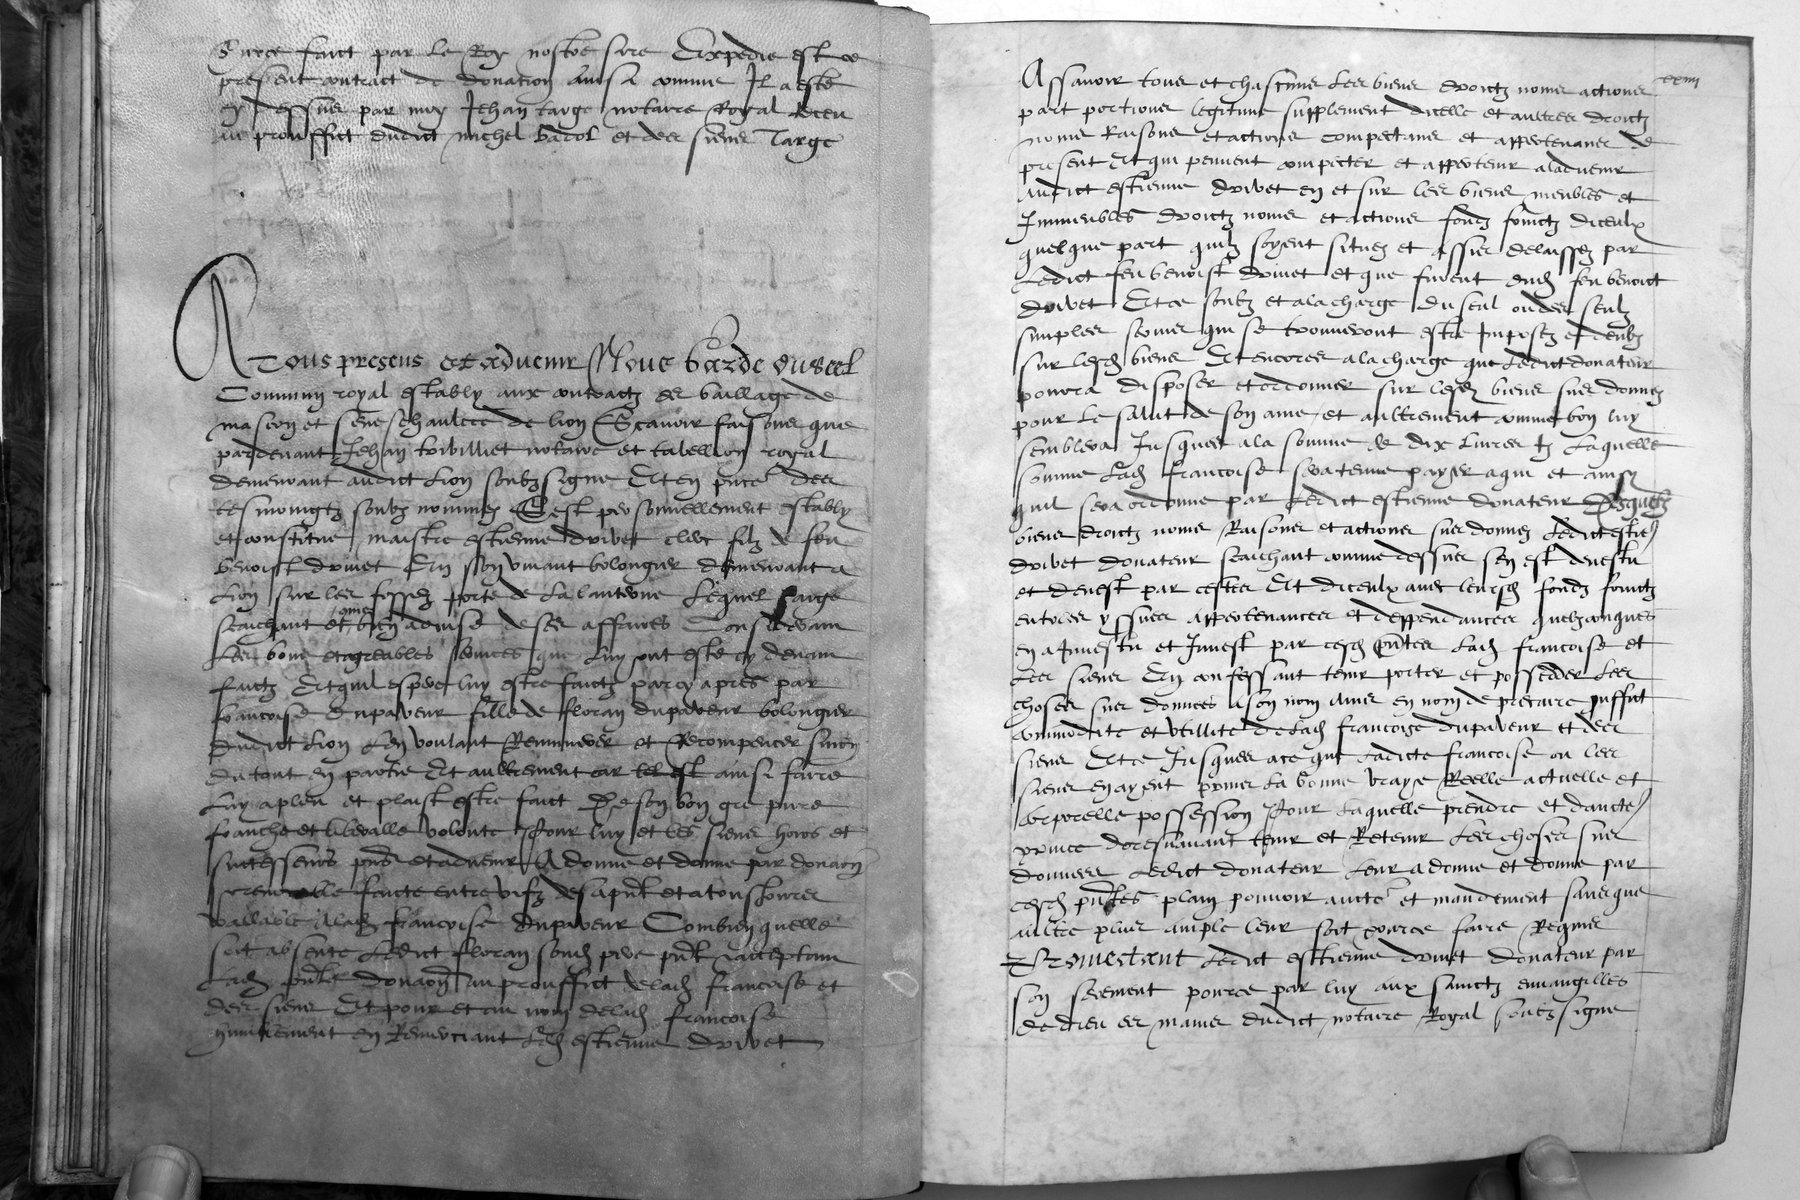 Sur ce faict par le Roy nostre sire Expedie est ce
present contract de donation ainsi comme Il a este
cy dessus par moy Jehan targe notaire Royal
au prouffict dudict michel et des siens Targe
A Tous presens et advenir Nous garde du seel
Commun royal estably aux contractz es bailliage de
mascon et seneschaulcee de lion Scavoir faisons que
pardevant Jehan trivilliet notaire et tabellion royal
demeurant audict Lion soubzsigne Et en pnce des
tesmoingtz soubz nommez C'est personnellement estably
et constitue maistre estienne drivet clerc filz de feu
benoist drivet En son vivant bolongier demeurant a
Lion sur les fossez porte de la lanterne Lequel
scaichant et bien advise de ses affaires Considerant
Les bons et agreables services que luy ont este cy devant
faictz Et quil espere luy estre faictz par cy apres par
francoise dupaveur fille de floran dupaveur bolongier
dudict Lion Len voulant Remunerer et Recompencer sinon
du tout en partie Et aultrement car tel est ainsi faire
Luy a pleu et plaist estre faict De son bon gre pure
franche et liberalle volonte Pour luy et les siens hoirs et
successeurs pns et advenir A donne et donne par donaon
faicte entre vifz des apnt et a tousjours
vallable A lad francoise dupaveur Combien quelle
soit absente Ledict floran sond pere pnt acceptant
Lad pnte donaon au prouffict de lad francoise et
des siens Et pour et au nom de lad francoise
en Remerciant led estienne drivet
xxiiii
Assavoir tous et chascuns les biens droictz noms actions
part portions legitime supplement dicelle et aultres droictz
noms Raisons et actions competans et appertenans de
present Et qui peuvent compecter et appertenir aladvenir
audict estienne drivet en et sur les biens meubles et
Immeubles droictz noms et actions fondz fruictz diceulx
quelque part quilz soyent situez et assis delaissez par
Ledict feu benoist drivet et que furent dud feu benoict
drivet Et ce soubz et a la charge du seul ou des seulz
simples servis qui se trouveront estre Imposez et deubz
sur lesd biens Et encores a la charge que Ledict donateur
pourra disposer et ordonner sur lesd biens sus donnez
pour le salut de son ame et aultrement comme bon luy
semblera Jusques a la somme de dix Livres tz Laquelle
somme Lad francoise sera tenue payer a qui et ainsi
quil sera ordonne par Ledict estienne donateur Desquelz
biens droictz noms Raisons et actions sus donnez Ledict estie
drivet donateur scaichant comme dessus sen est devestu
et devest par cestes Et diceulx avec leursd fondz fruictz
entrees yssues appertenances et deppendances quelzconques
en a Investu et Invest par cesd pntes Lad francoise et
Les siens En confessant tenir porter et posseder Les
choses sus donnees a son nom ains en nom de precaire puffict
commodite et utillite de Lad francoise dupaveur et des
siens Et ce Jusques a ce que Ladicte francoise ou les
siens en ayent prins La bonne vraye Reelle actuelle et
corporelle possession Pour Laquelle prendre et dancte
prince doresnavant tenir et Retenir Les choses sus
donnees Ledict donateur Leur a donne et donne par
cesd pntes plain pouvoir aucte et mandement sans que
aultre plus ample leur soit par ce faire Requis
Promectant Ledict estienne drivet donateur par
son serement pource par luy aux sainctz euvangilles
de dieu es mains dudict notaire Royal soubzsigne